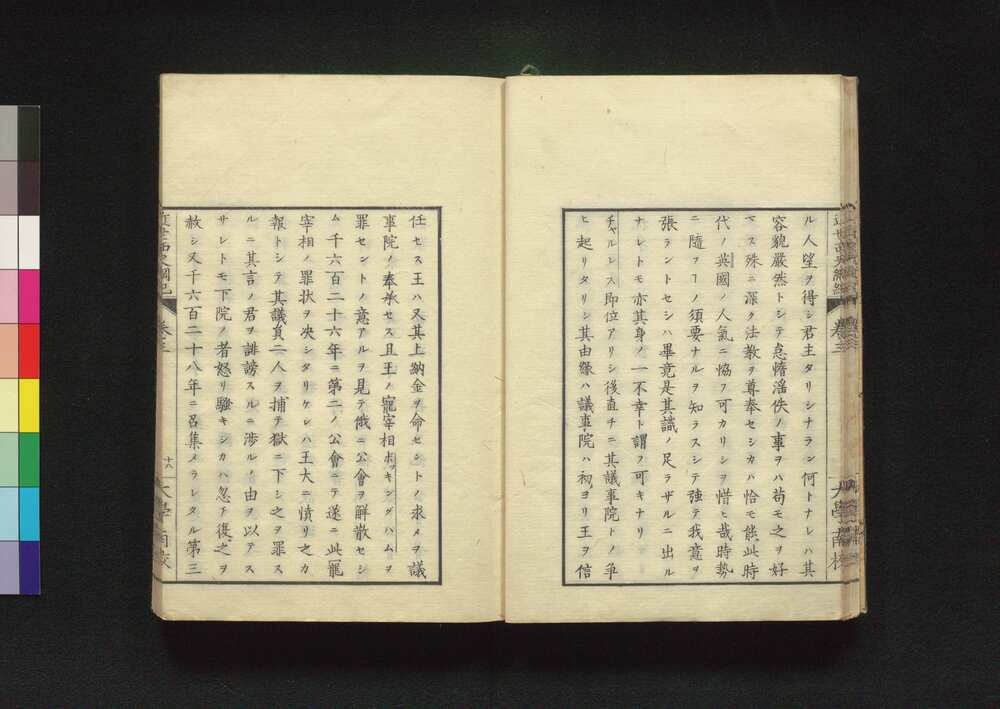 ル人望ヲ得シ君主タリシナラン何トナレハ其
容貌嚴然トシテ怠惰滛佚ノ事ヲハ苟モ之ヲ好
マス殊ニ深ク法教ヲ尊奉セシカハ恰モ能此時
代ノ英國ノ人氣ニ恊フ可カリシヲ惜ヒ哉時勢
ニ隨フヿノ須要ナルヲ知ラスシテ強テ我意ヲ
張ラントセシハ畢竟是其識ノ足ラザルニ出ル
ナレトモ亦其身ノ一不幸ト謂フ可キナリ
チャルレス即位アリシ後直チニ其議事院トノ争
ヒ起リタリシ其由緣ハ議事院ハ初ヨリ王ヲ信
任セス王ハ又其上納金ヲ命セシトノ求メヲ議
事院ノ奉承セス且王ノ寵宰相ボッキングハムヲ
罪セントノ意アルヲ見テ俄ニ公會ヲ解散セシ
ム千六百二十六年ニ第二ノ公會ニテ遂ニ此寵
宰相ノ罪状ヲ决シタリケレハ王大ニ憤リ之カ
報トシテ其議員二人ヲ捕テ獄ニ下シ之ヲ罪ス
ルニ其言ノ君ヲ誹謗スルニ渉ルノ由ヲ以テス
サレトモ下院ノ者怒リ騒キシカハ忽チ復之ヲ
赦シ又千六百二十八年ニ召集メラレタル第三
卷三
十八
大學南校